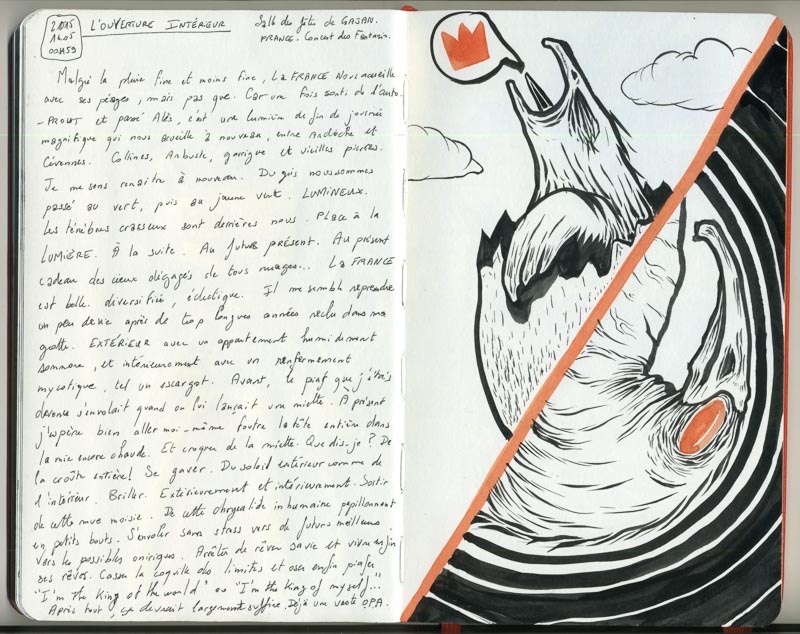 21015
14.05
00H59
L'OUVERTURE INTÉRIEUR
Salle des fêtes de GAJAN.
FRANCE. Concert des Fantasin.
Malgré la pluie fine et moins fine, La FRANCE nous accueille
avec ses péages, mais pas que. Car une fois sorti de l'auto-
-PROUT et passé Alès, c'est une lumière de fin de journée
magnifique qui nous accueille à nouveau, entre Ardèche et
Cévennes. Collines, Arbuste, garrigue et vieilles pierres.
Je me sens renaître à nouveau. Du gris nous sommes
passé au vert, puis au jaune vert. LUMINEUX.
Les ténèbres crasseux sont derrières nous. Place à la
LUMIÈRE. À la suite. Au futur présent. Au présent
cadeau des cieux dégagés de tous nuages... La FRANCE
est belle. diversifiée, éclectique. Il me semble reprendre
un peu de vie après de trop longues années reclu dans ma
grotte. EXTÉRIEUR avec un appartement humidement
sommaire, et intérieurement avec un renfermement
mycotique, tel un escargot. Avant, le piaf que j'étais
devenu s'envolait quand on lui lançait une miette. À présent
j'espère bien aller moi-même foutre la tête entière dans
la mie encore chaude. Et croquer de la miette. Que dis-je? De
la croûte entière! Se gaver. Du soleil extérieur comme de
l'intérieur. Briller. Extérieurement et intérieurement. Sortir
de cette mue moisie. De cette chrysalide inhumaine papillonnant
en petits bouts. S'envoler sans strass vers de futurs meilleurs
vers les possibles oniriques. Arrêter de rêver sa vie et vivre enfin
ses rêves. Casser la coquille des limites et oser enfin piafer
"I'm the King of the world" ou "I'm the king of myself"...
Après tout, ça devrait largement suffire. Déjà une vaste OPA.